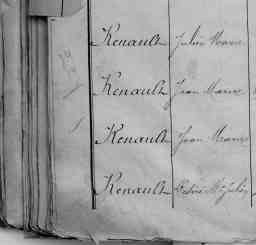 Renault Julien Marie
Renault Jean Marie
Renault Jean Marie
Renault